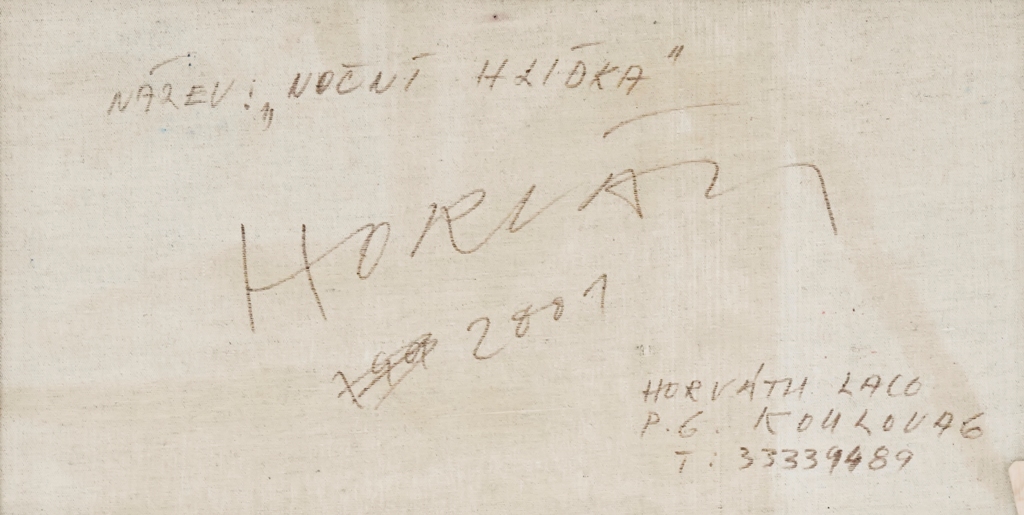 NÁZEV: „NOČNÍ HLÍDKA"
HORVÁTH
2001
HORVÁTH LACO
P.G.
T: 33339489